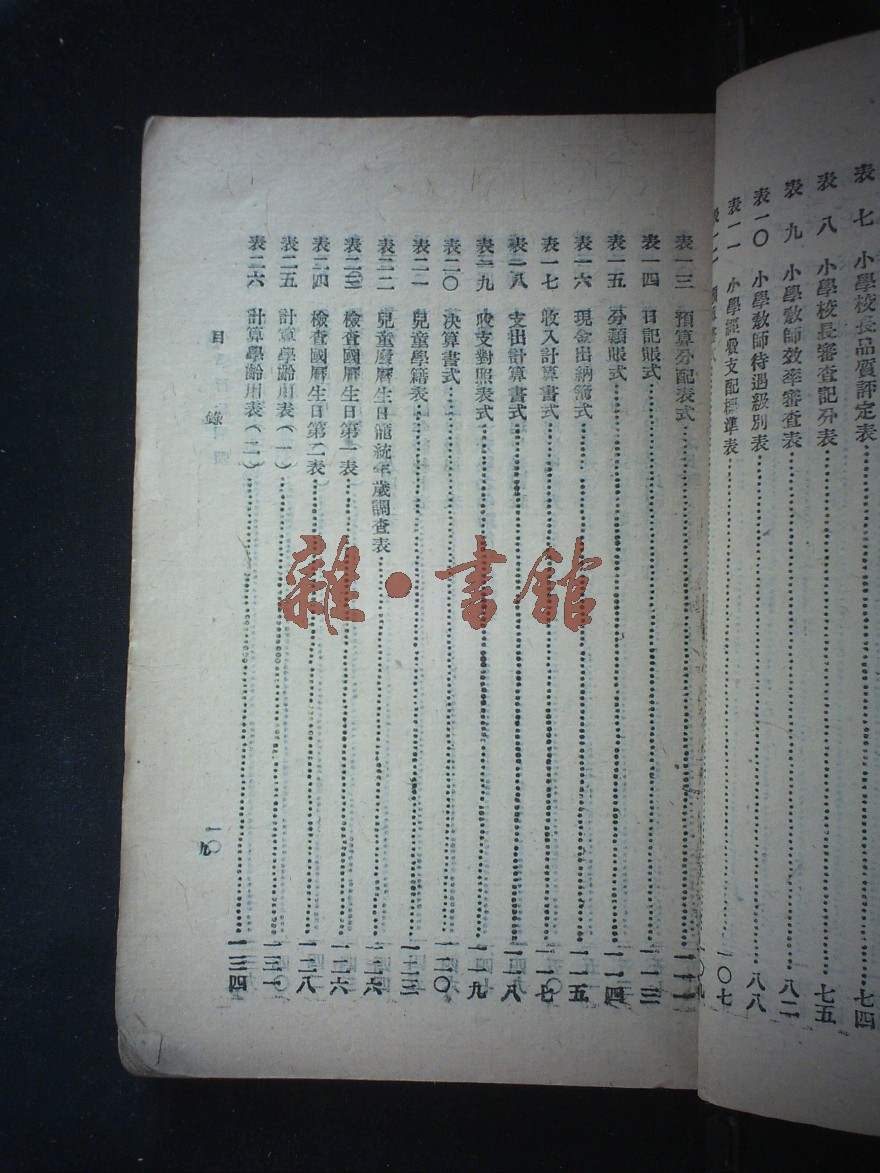 表 七 小學校長品質評定表 七四
表 八 小學校長審查記分表 七五
表 九 小學教師效率審查表 八二
表一〇 小學教師待遇級別表 八八
表一一 小學經費支配標準表 一〇七
表一三 預算分配表式 一一一
表一四 日記賬式 一一三
表一五 分類賬式 一一四
表一六 現金出納簿式 一一五
表一七 收入計算書式 一一七
表一八 支出計算書式 一一八
表一九 收支對照表式 一一九
表二〇 決算書式 一二〇
表二一 兒童學籍表
表二二 兒童廢曆生日籠統年歲調查表 一二六
表二三 檢查國曆生日第一表 一二六
表二四 檢查國曆生日第二表 一二八
表二五 計算學齡用表(一) 一三一
表二六 計算學齡用表(二) 一三四
目錄
雜·書館